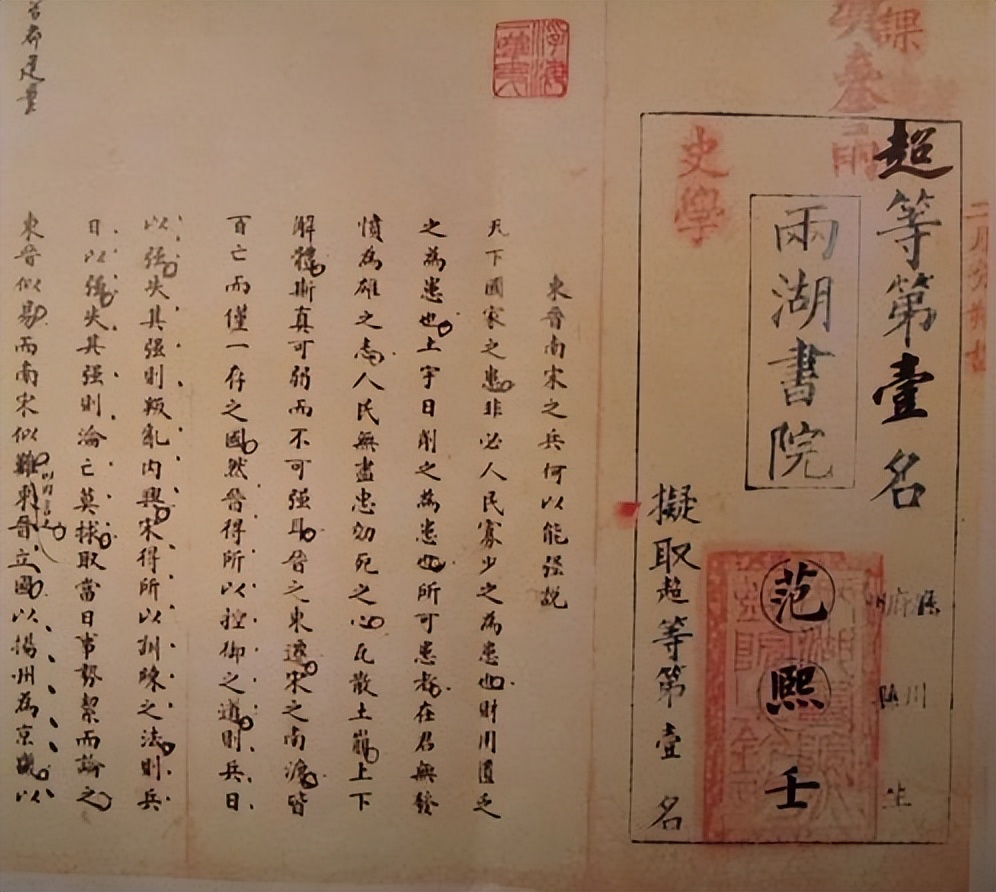 超等第壹名
兩湖書院
史學
范熙壬
擬取超等第壹名
東晉南宋之兵何以能强說
天下國家之患非必人民寡少之為患也財用匱乏
之為患也土宇日削之為患也所可患者在君無發
憤為雄之志人民無盡忠効死之心瓦散土崩上下
解體斯真可弱而不可强耳晉之東遷宋之南渡皆
百亡而僅一存之國然晉得所以控御之道則兵日
以强失其强則叛亂内興宋得所以訓陳之法則兵
日以强失其强則淪亡莫救取當日事勢絜而論之
東晉似易而南宋似難東晉立國以揚州為京畿以